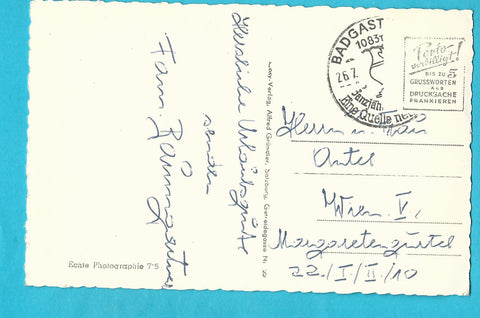 Herzliche Urlaubsgrüße
senden
Fam.
BADGAST
1083
26.7.
Ganzjähr
Eine Quelle neu
Porto-
verbilligt!
BIS ZU 5
GRUSSWORTEN
ALS
DRUCKSACHE
FRANKIEREN
Verlag Alfred Gründler, Salzburg, Nr. 22
Echte Photographie 7'5
Herrn u. Frau
Antel
Wien V.,
Margaretengürtel
22./I./II./10